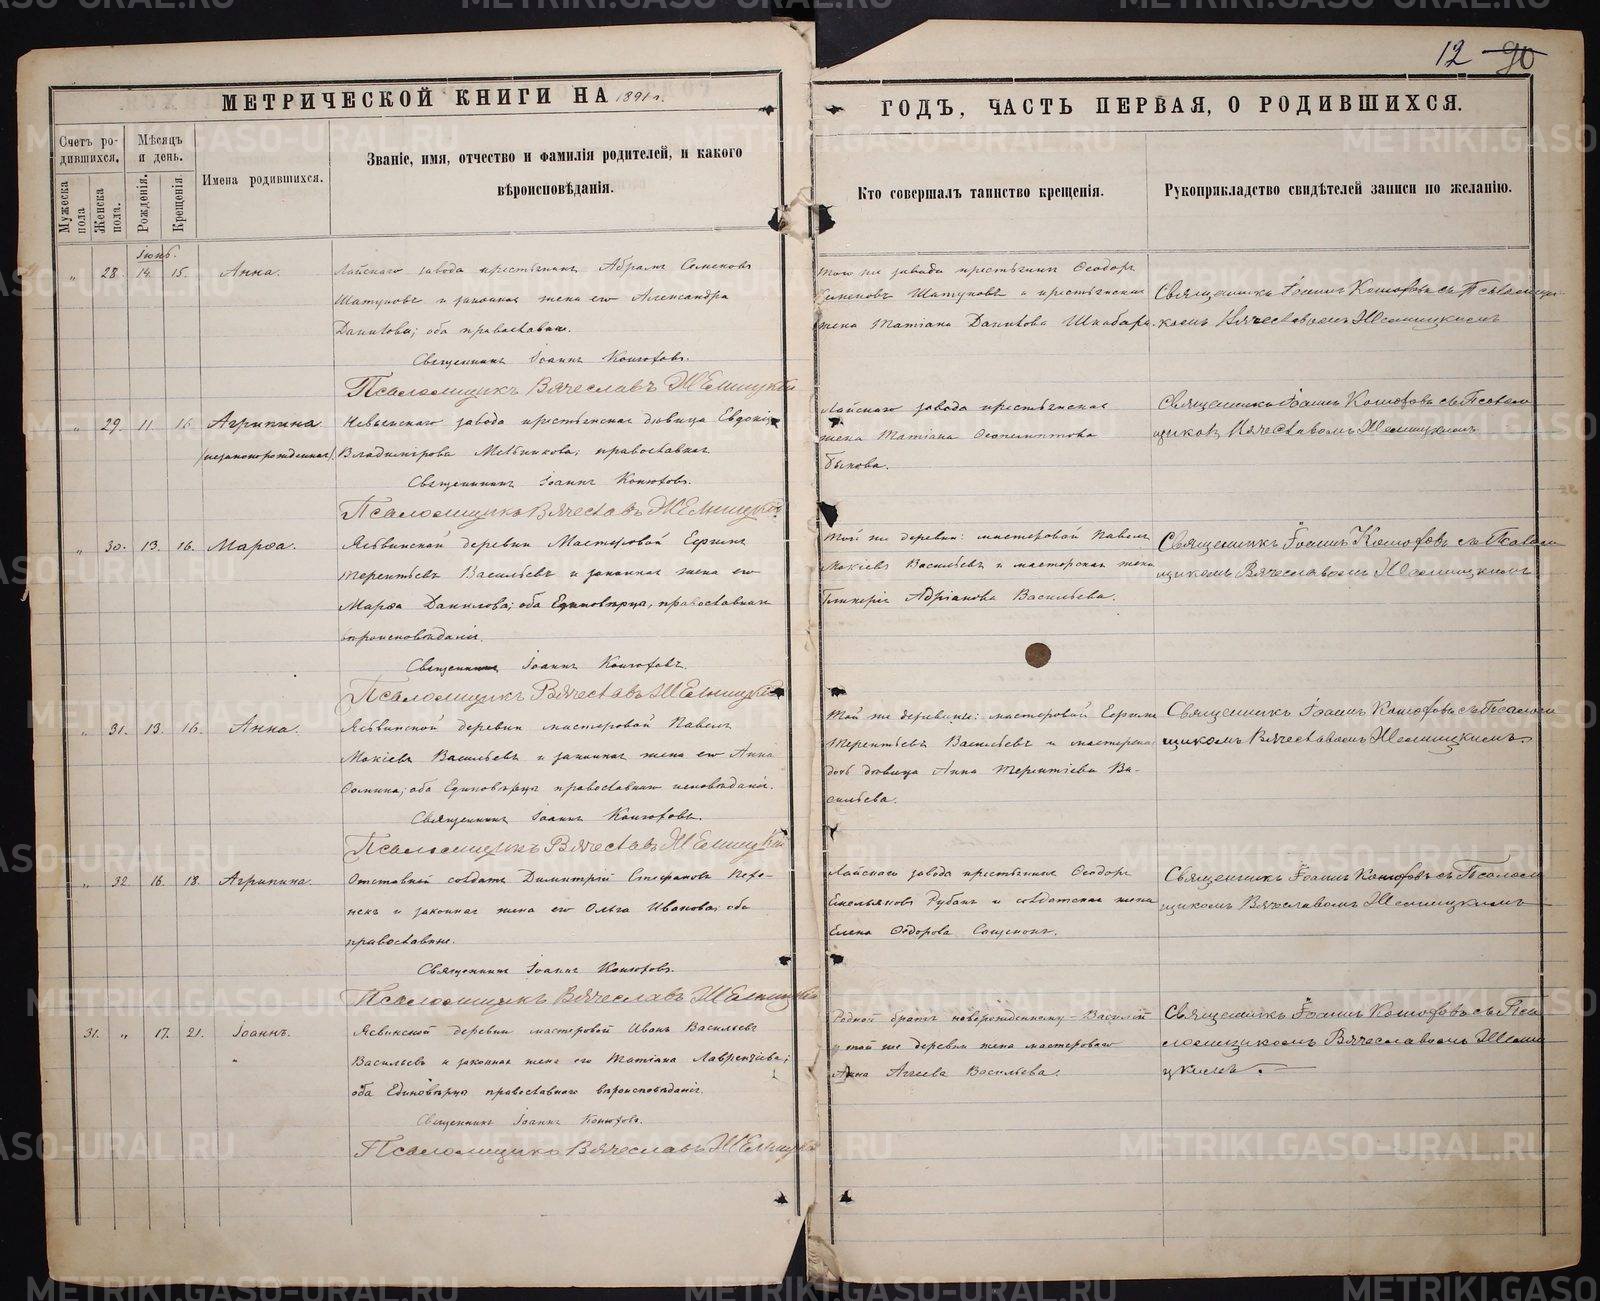 12 90
МЕТРИЧЕСКОЙ КНИГИ НА 1891 г.
ГОДЪ, ЧАСТЬ ПЕРВАЯ, О РОДИВШИХСЯ.
Счетъ ро-
дившихся.
Мужеска
пола
Женска
пола.
Мѣсяцъ
и день.
Рожденія.
Крещенія.
Имена родившихся.
Званіе, имя, отчество и фамилія родителей, и какого
вѣроисповѣданія.
Кто совершалъ таинство крещенія.
Рукоприкладство свидѣтелей записи по желанію.
Іюнь.
„ 28. 14. 15. Анна.
Лайскаго завода крестьянинъ Абрамъ Семеновъ
Шатуновъ и законная жена его Александра
Данилова; оба православные.
Священникъ Іоаннъ Конюховъ.
Псаломщикъ Вячеславъ
Того же завода крестьянинъ Ѳеодоръ
Семеновъ Шатуновъ и крестьянская
жена Татіана Данилова
Священникъ Іоаннъ Конюховъ съ Псаломщи-
комъ Вячеславомъ
„ 29. 11. 16. Агрипина
(незаконорожденная).
Невьянскаго завода крестьянская дѣвица Евдокія
Владимірова Мельникова, православная
Священникъ Іоаннъ Конюховъ.
Псаломщикъ Вячеславъ
Лайскаго завода крестьянская
жена Татіана
Быкова.
Священникъ Іоаннъ Конюховъ съ Псалом
щикомъ Вячеславомъ
„ 30. 13. 16. Марѳа.
деревни Мастеровой Сергій
Терентьевъ Васильевъ и законная жена его
Марѳа Данилова; оба Единовѣрцы, православнаго
вѣроисповѣданія.
Священникъ Іоаннъ Конюховъ.
Псаломщикъ Вячеславъ
Той же деревни: мастеровой Павелъ
Мокіевъ Васильевъ и мастерская жена
Гликерія Адріанова Васильева.
Священникъ Іоаннъ Конюховъ съ Псалом
щикомъ Вячеславомъ
„ 31. 13. 16. Анна.
деревни мастеровой Павелъ
Мокіевъ Васильевъ и законная жена его Анна
Ѳомина; оба Единовѣрцы православнаго исповѣданія.
Священникъ Іоаннъ Конюховъ.
Псаломщикъ Вячеславъ
Той же деревни: мастеровой Сергій
Терентьевъ Васильевъ и
дочь дѣвица Анна Терентіева Ва-
сильева.
Священникъ Іоаннъ Конюховъ съ Псалом
щикомъ Вячеславомъ
„ 32. 16. 18. Агрипина.
Отставной солдатъ Димитрій Стефановъ
и законная жена его Ольга Иванова; оба
православные.
Священникъ Іоаннъ Конюховъ.
Псаломщикъ Вячеславъ
Лайскаго завода крестьянинъ Ѳеодоръ
Емельяновъ и солдатская жена
Елена Ѳедорова
Священникъ Іоаннъ Конюховъ съ Псалом
щикомъ Вячеславомъ
31. „ 17. 21. Іоаннъ.
деревни мастеровой Иванъ Васильевъ
Васильевъ и законная жена его Татіана Лаврентіева;
оба Единовѣрцы православнаго вѣроисповѣданія.
Священникъ Іоаннъ Конюховъ.
Псаломщикъ Вячеславъ
Родной братъ новорожденному - Василій
и той же деревни жена мастероваго
Анна Васильева.
Священникъ Іоаннъ Конюховъ съ Пса
ломщикомъ Вячеславомъ
METRIKI.GASO-URAL.RU